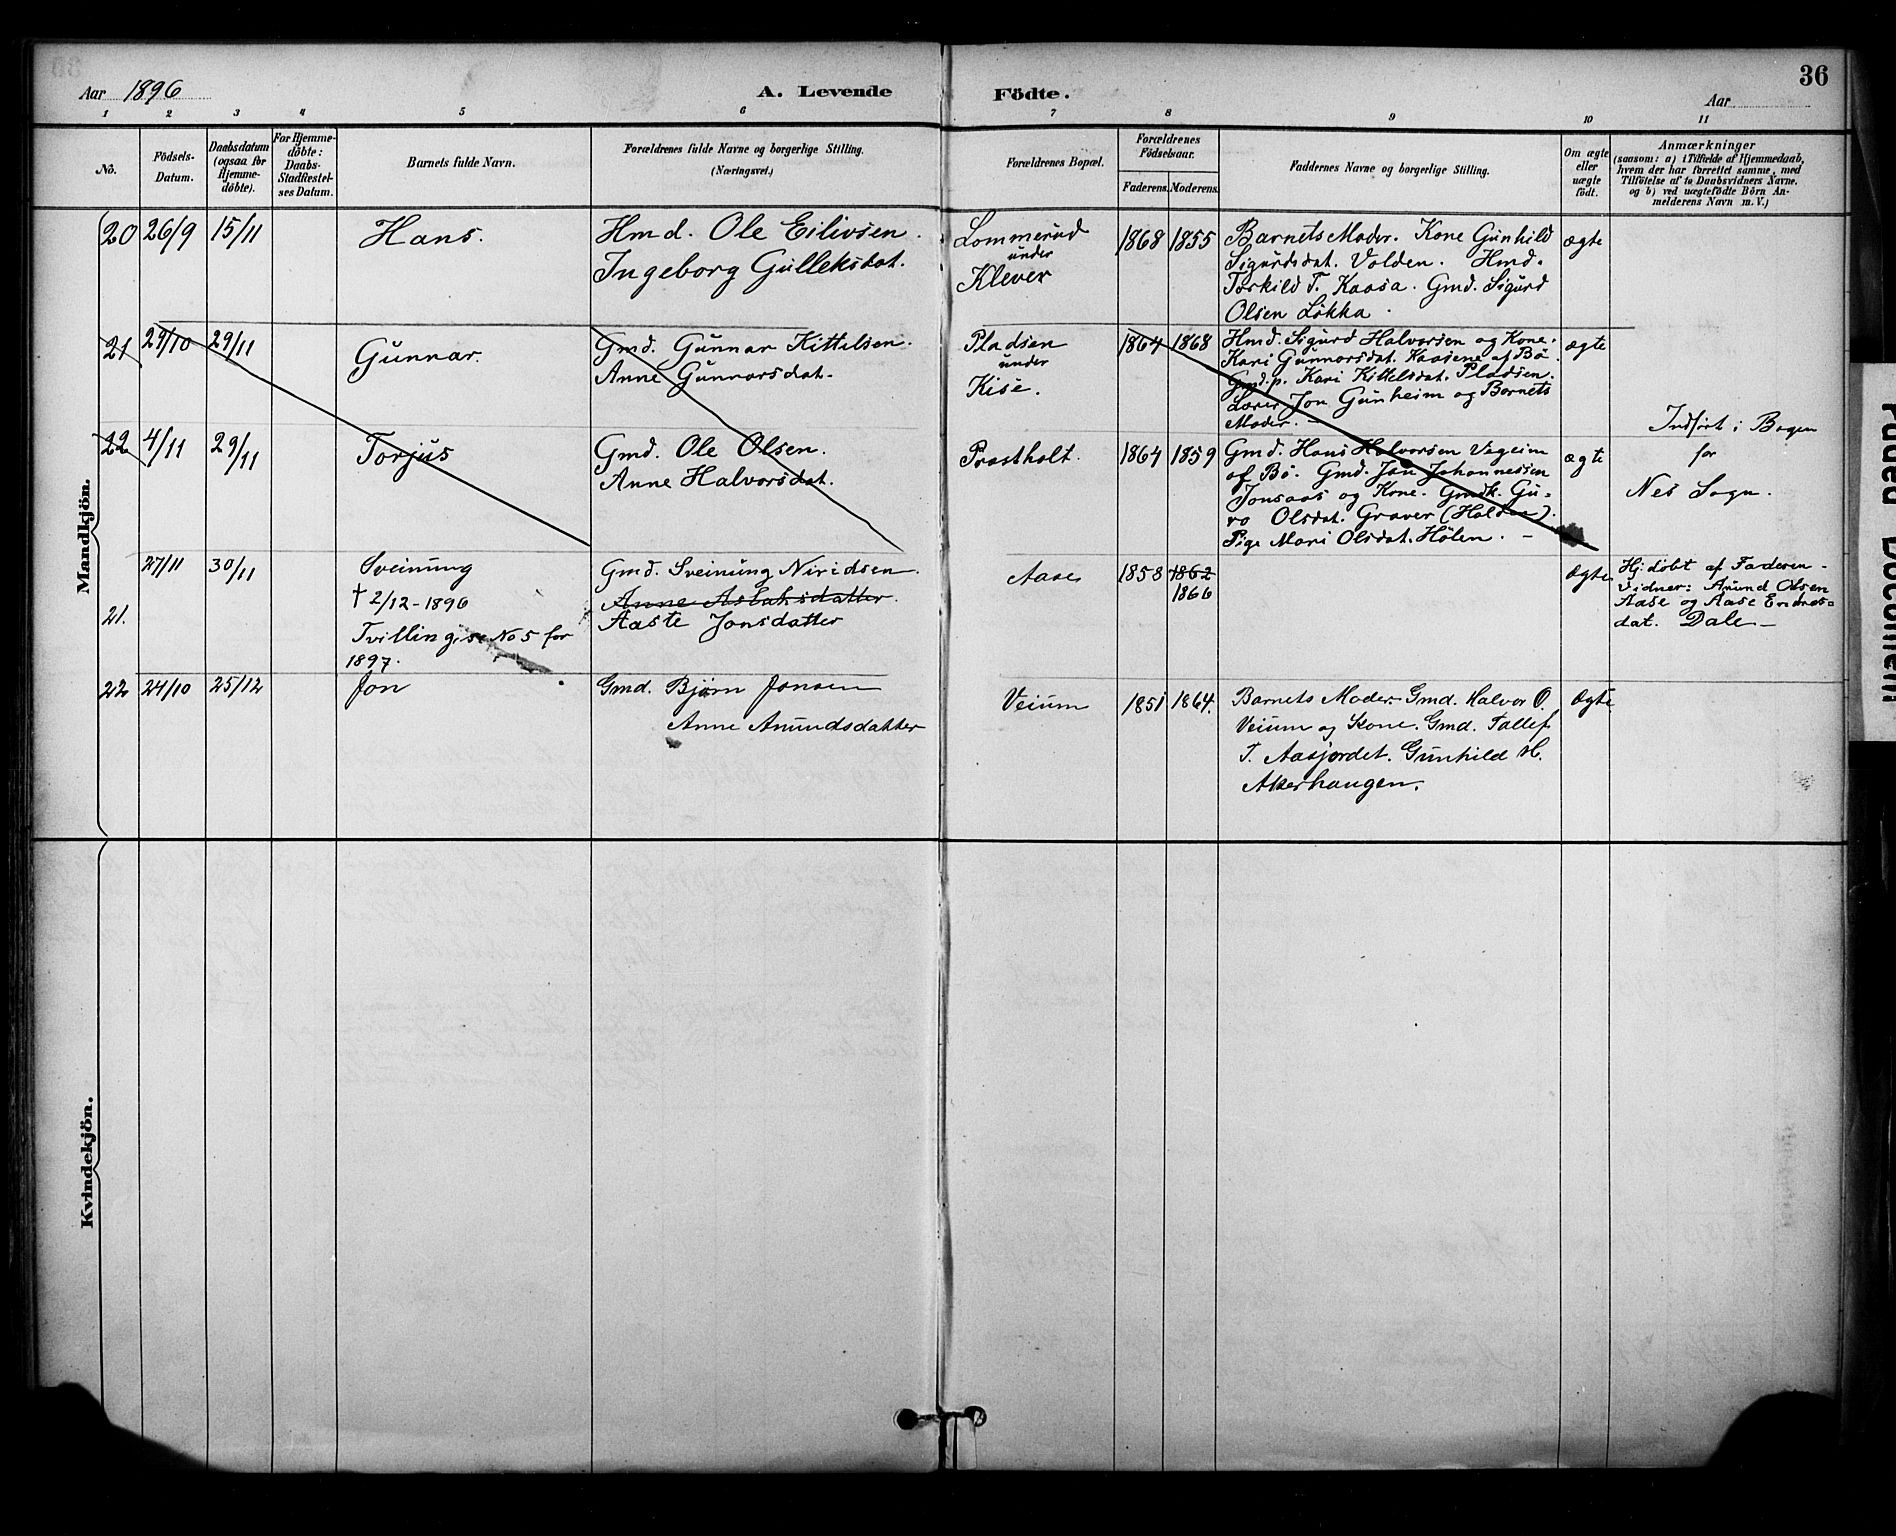 36
Aar 1896
A. Levende Födte.
Aar
1 2 3 4 5 6 7 8 9 10 11
No.
Födsels-Datum.
Daabsdatum (ogsaa for Hjemme-döbte).
For Hjemme-döbte: Daabs-Stadfæstel-ses Datum.
Barnets fulde Navn.
Forældrenes fulde Navne og borgerlige Stilling.
(Næringsvei.)
Forældrenes Bopæl.
Forældrenes Födselsaar.
Faderens. Moderens.
Faddernes Navne og borgerlige Stilling.
Om ægte eller uægte födt.
Anmærkninger
(saasom: a) i Tilfælde af Hjemmedaab,
hvem der har forrettet samme, med
Tilföielse af to Daabsvidners Navne.
og b) ved uægtefödte Börn An-
melderens Navn m. V.)
Mandkjön.
20 26/9 15/11 Hans.
Hmd. Ole Eilivsen.
Ingeborg Gulleksdat.
Lommerud
under
Klever
1868 1855
Barnets Moder. Kone Gunhild
Sigurdsdat. Volden. Hmd.
Torkild T. Kaasa. Gmd. Sigurd
Olsen Løkka.
ægte
21 29/10 29/11 Gunnar.
Gmd. Gunnar Kittelsen.
Anne Gunnarsdat.
Pladsen
under
Kise.
1864 1868
Hmd. Sigurd Halvorsen og Kone.
Kari Gunnarsdat. Kaasene af Bø.
Gmd.p. Kari Kittelsdat. Pladsen.
Lærer Jon Gunheim og Barnets
Moder. –
ægte
22 4/11 29/11 Torjus
Gmd. Ole Olsen.
Anne Halvorsdat.
Præstholt.
1864 1859
Gmd. Hans Halvorsen Vegeim
af Bø. Gmd. Jon Johannessen
Jonsaas og Kone. Gmdk. Gu-
ro Olsdat. Graver (Halden).
Pige Mari Olsdat. Hølen. –
ægte
Indført i Bogen
for
Nes Sogn.
21. 27/11 30/11 Sveinung
† 2/12-1896
Tvilling; se No 5 for
1897.
Gmd. Sveinung Niridsen.
Anne Aslaksdatter.
Aaste Jonsdatter
Aase
1858 1862
1866
Ægte
Hj.døbt af Faderen -
Vidner: Amund Olsen
Aase og Aase Endres-
dat. Dale –
22 24/10 25/12 Jon
Gmd. Bjørn Jonsen
Anne Amundsdatter
Veium
1851 1864.
Barnets Moder. Gmd. Halvor O.
Veium og Kone. Gmd. Tallef
T. Aasjordet. Gunhild H.
Akerhaugen.
Ægte
Kvindekjön.